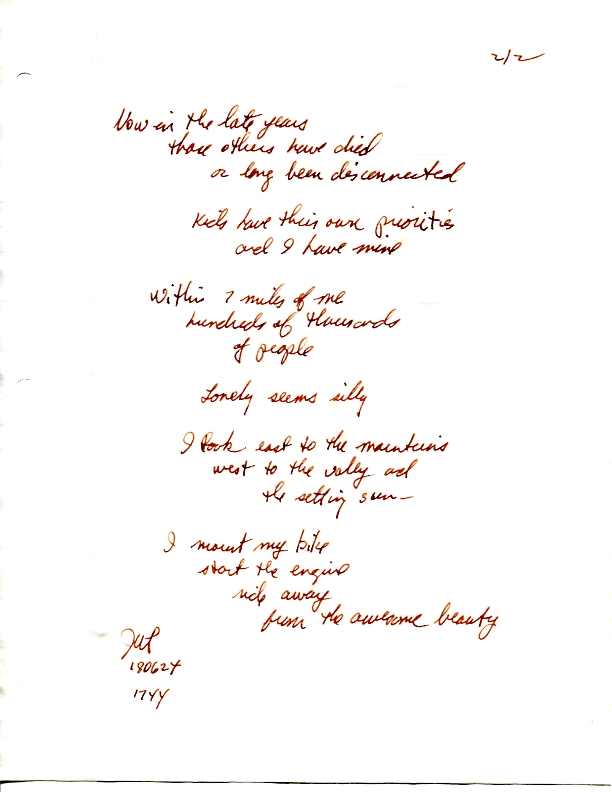 2/2
Now in the late years
those others have died
or long been disconnected
Kids have their own priorities
and I have mine
Within 7 miles of me
hundreds of thousands
of people
Lonely seems silly
I look east to the mountains
west to the valley and
the setting sun—
I mount my bike
start the engine
ride away
from the awesome beauty
180624
1744